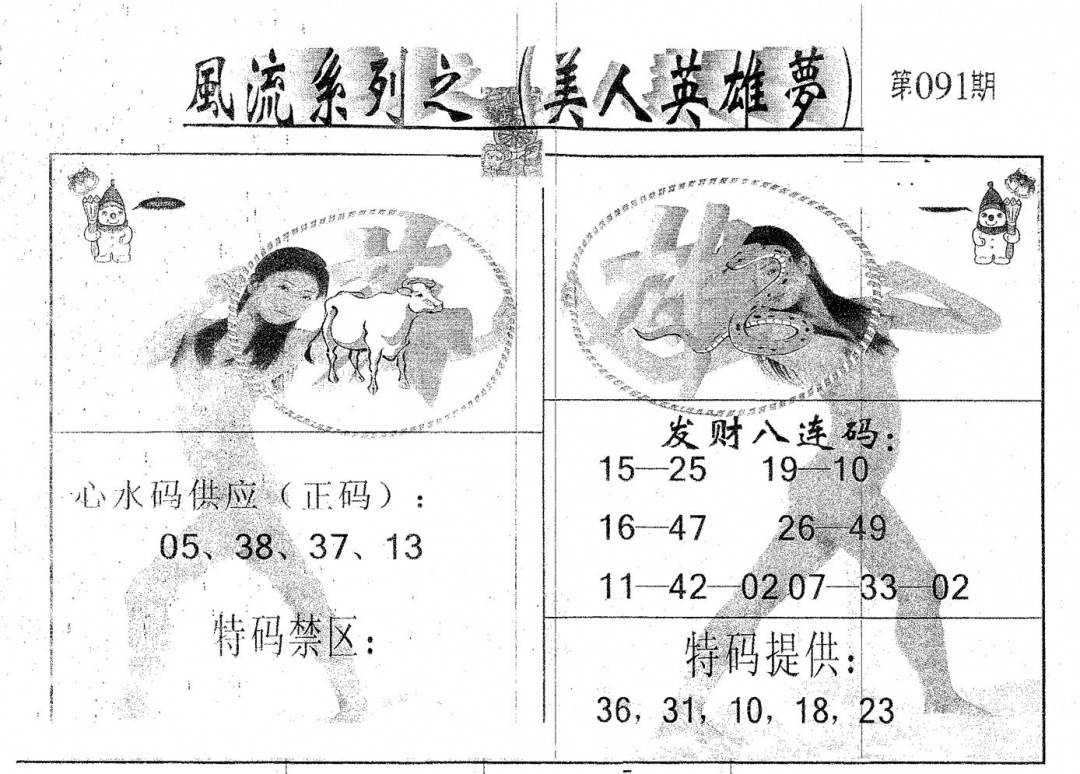 風流系列之（美人英雄夢） 第091期
心水码供应（正码）：
05、38、37、13
特码禁区：
发财八连码：
15—25 19—10
16—47 26—49
11—42—02 07—33—02
特码提供：
36，31，10，18，23